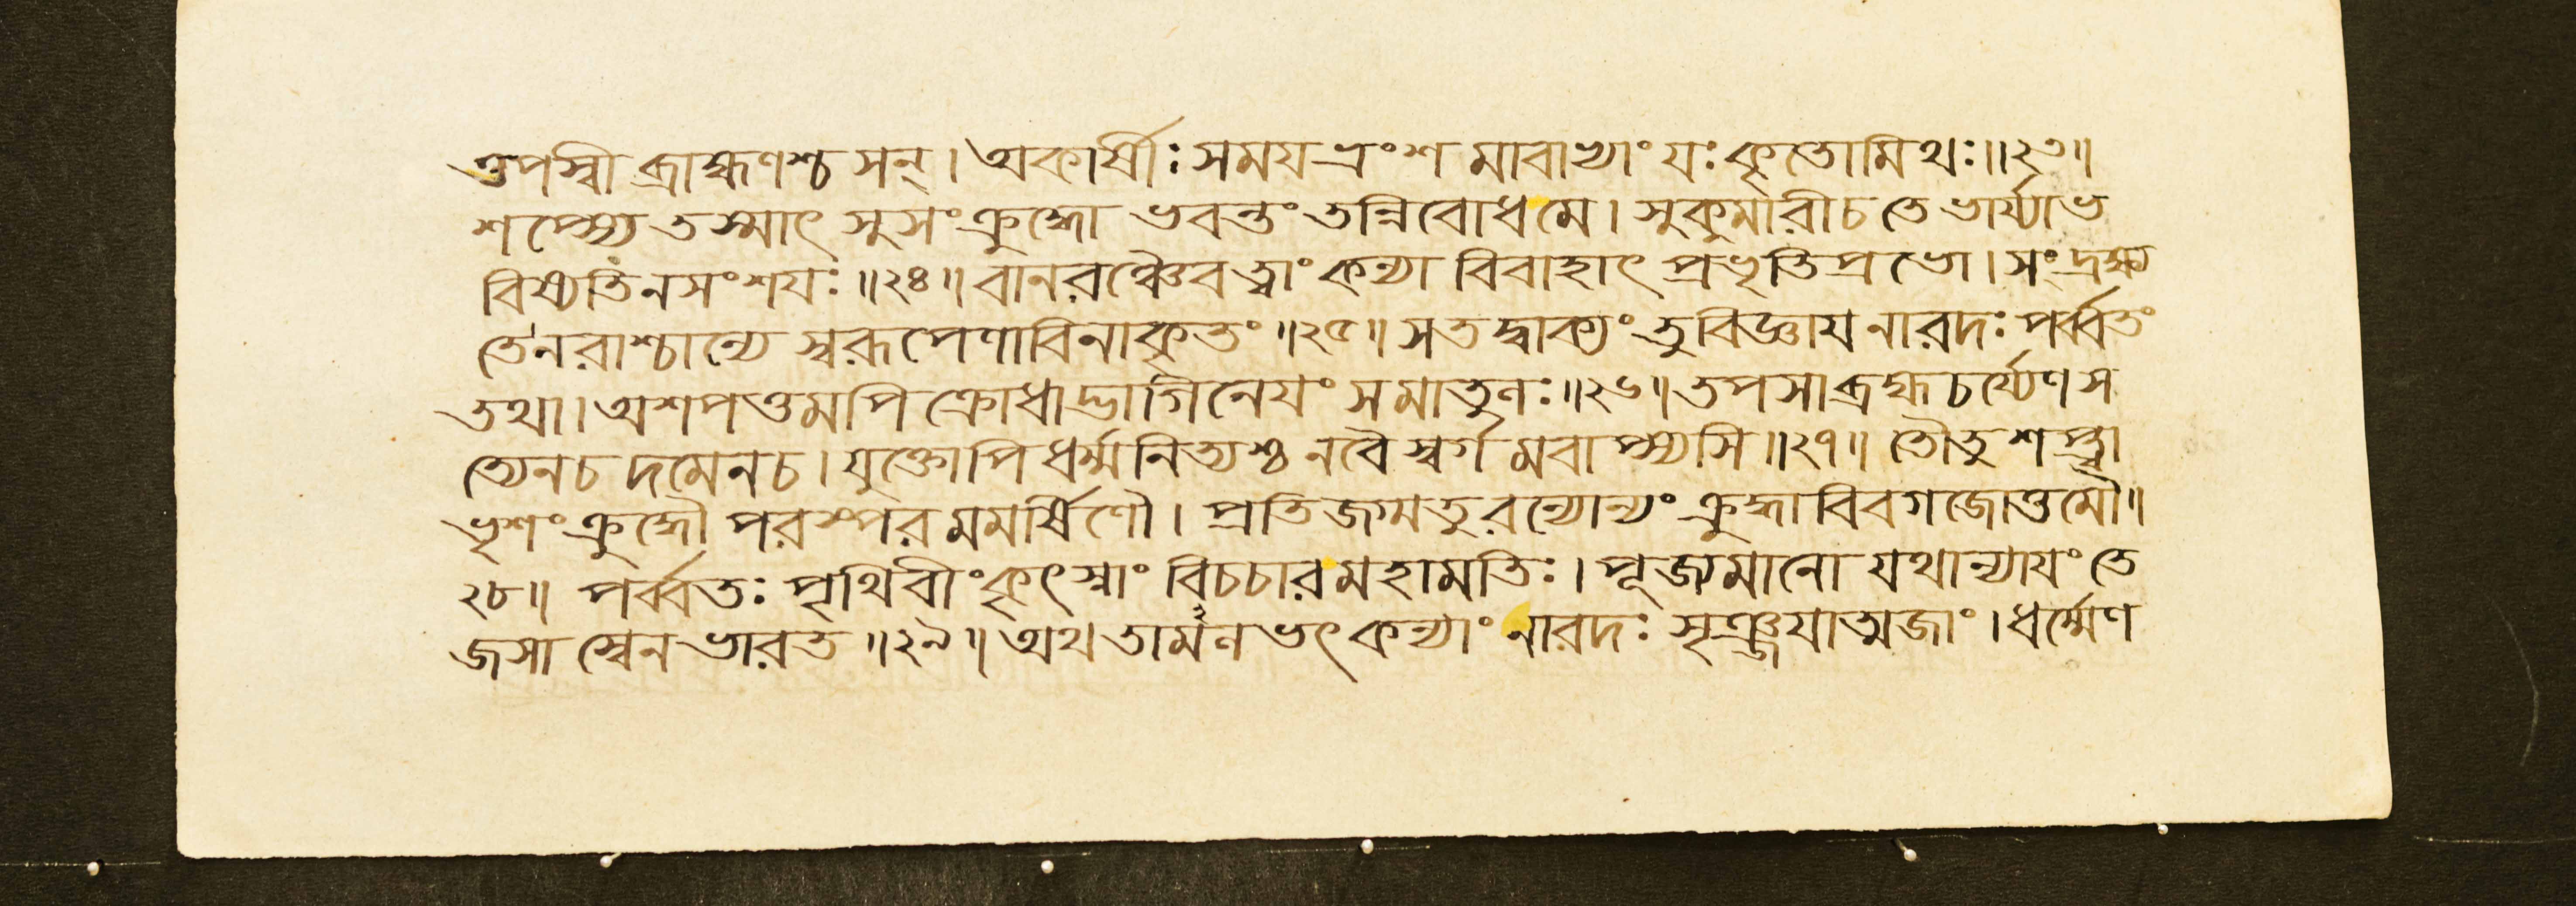 তপস্বী ব্রাহ্মণশ্চ সন্। অকার্ষীঃ সময়ভ্রংশ মাবাভ্যাং যঃ কৃতোমিথঃ॥২৩॥
শপ্স্যে তস্মাৎ সুসংক্রুদ্ধো ভবন্তং তন্নিবোধমে। সুকুমারীচ তে ভার্য্যাভ
বিষ্যতিনসংশযঃ॥২৪॥ বানরঞ্চৈবত্বাং কন্যা বিবাহাৎ প্রভৃতিপ্রভো। সংদ্রক্ষ্য
তেনরাশ্চান্যে স্বরূপেণাবিনাকৃতং॥২৫॥ সতদ্বাক্যংতুবিজ্ঞাযনারদঃ পর্ব্বতং
তথা। অশপত্তমপি ক্রোধাদ্ভাগিনেযং সমাতুলঃ॥২৬॥ তপসাব্রহ্মচর্য্যেণস
ত্যেনচ দমেনচ। যুক্তোপি ধর্ম্মনিত্যশ্চ নবৈ স্বর্গমবাপ্স্যসি॥২৭॥ তৌতু শপ্ত্বা
ভৃশংক্রুদ্ধৌ পরস্পরমমর্ষিণৌ। প্রতিজগ্মতুরন্যোন্যং ক্রুদ্ধাবিবগজোত্তমৌ॥
২৮॥ পর্ব্বতঃ পৃথিবীং কৃৎস্নাং বিচচারমহামতিঃ। পূজ্যমানো যথান্যাযং তে
জসা স্বেনভারত॥২৯॥ অথ তামলভৎ কন্যাং নারদঃ সৃঞ্জযাত্মজাং। ধর্ম্মেণ